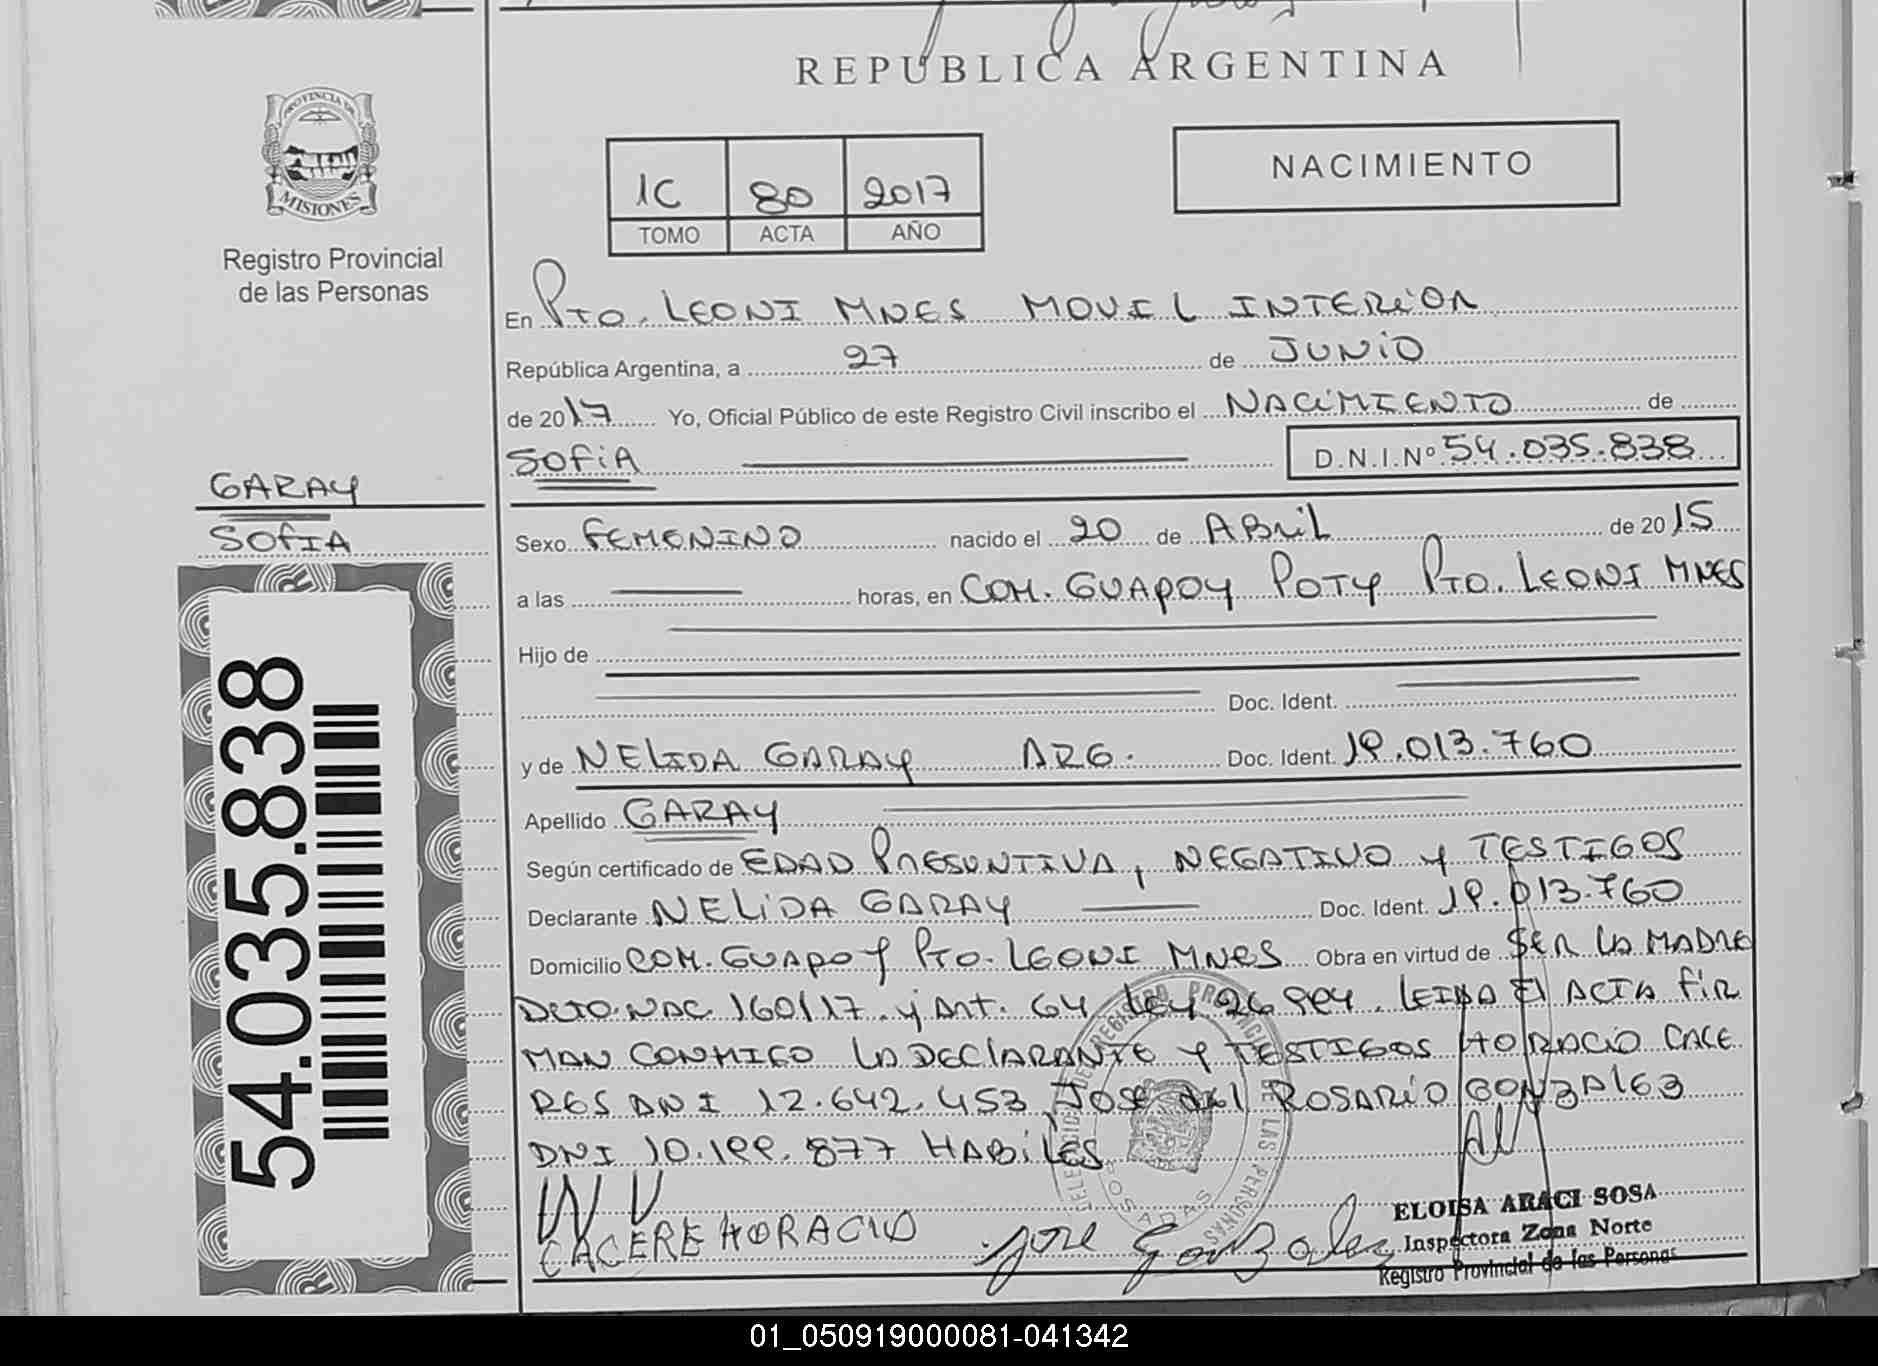 REPUBLICA ARGENTINA
PROVINCIA DE
MISIONES
Registro Provincial
de las Personas
NACIMIENTO
1C 80 2017
TOMO ACTA AÑO
En Pto. LEONI MNES MOVIL INTERIOR
República Argentina, a 27 de JUNIO
de 2017 Yo, Oficial Público de este Registro Civil inscribo el NACIMIENTO de
SOFIA D.N.I.Nº 54.035.838
GARAY
SOFIA
Sexo FEMENINO nacido el 20 de ABRIL de 2015
a las horas, en COM. GUAPOY POTY PTO. LEONI MNES
Hijo de
Doc. Ident.
y de NELIDA GARAY ARG. Doc. Ident. 19.013.760
Apellido GARAY
Según certificado de EDAD PRESUNTIVA, NEGATIVO y TESTIGOS
Declarante NELIDA GARAY Doc. Ident. 19.013.760
Domicilio COM. GUAPOY PTO. LEONI MNES Obra en virtud de SER LA MADRE
DCTO. NAC. 160/17. y Art. 64 Ley 26.994. LEIDA El ACTA FIR
MAN CONMIGO LA DECLARANTE y TESTIGOS HORACIO CACE
RES DNI 12.642.453, JOSE del ROSARIO GONZALEZ
DNI 10.199.877 HABILES
CACERE HORACIO
jose Gonzalez
ELOISA ARACI SOSA
Inspectora Zona Norte
Registro Provincial de las Personas
54.035.838
01_050919000081-041342